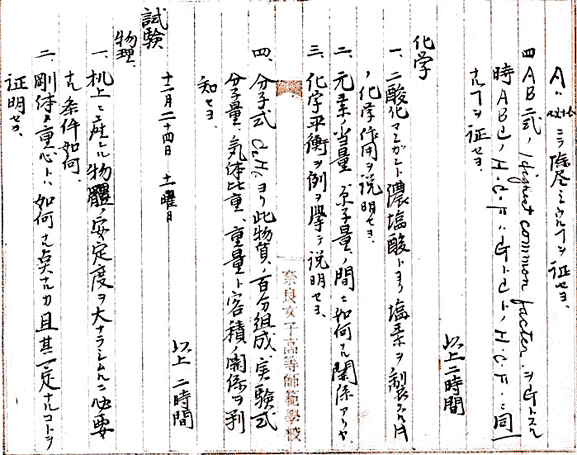 Aハ a+bニテ除尽シ得ルコトヲ証セヨ
四 AB二式ノHighest common factorヲGトスル
時AB及ノH.C.F.ハGトノH.C.F.ニ同
ナルコトヲ証セヨ
以上二時間
化学
一、二酸化マンガント濃塩酸トヨリ塩素ヲ製スル時
ノ化学作用ヲ説明セヨ
二、元素ノ当量ト原子量ノ間ニ如何ナル関係アリヤ
三、化学平衡ヲ例ヲ挙ゲ説明セヨ
四、分子式ヨリ此物質ノ百分組成、実験式
分子量、気体比重、重量ト容積ノ関係ヲ判
知セヨ
以上二時間
十二月二十四日 土曜日
試験
物理
一、机上ニ在ル物体ノ安定度ヲ大ナラシムルニ必要
ナル条件如何
二、剛体ノ重心トハ如何ナル点ナルカ且其一定ナルコトヲ
証明セヨ
奈良女子高等師範学校